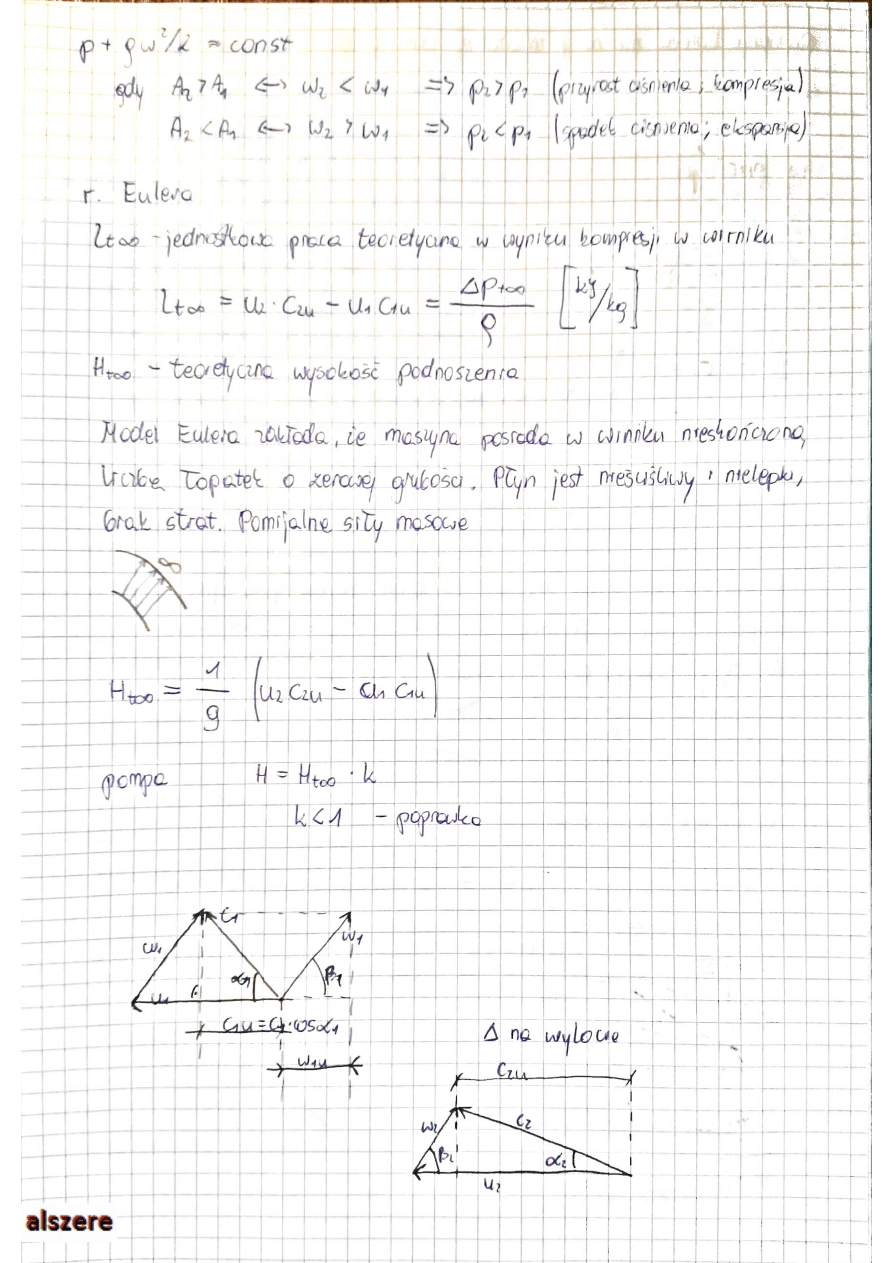 p + ρw²/2 = const
gdy A₂ > A₁ ↔ w₂ < w₁ => p₂ > p₁ (przyrost ciśnienia; kompresja)
A₂ < A₁ ↔ w₂ > w₁ => p₂ < p₁ (spadek ciśnienia; ekspansja)
r. Eulera
lt∞ - jednostkowa praca teoretyczna w wyniku kompresji w wirniku
lt∞ = u₂ · C2u - u₁ C1u = Δpt∞ / ρ [kJ/kg]
Ht∞ - teoretyczna wysokość podnoszenia
Model Eulera zakłada, że maszyna posiada w wirniku nieskończoną
liczbę łopatek o zerowej grubości. Płyn jest nieściśliwy i nielepki,
brak strat. Pomijalne siły masowe
∞
Ht∞ = 1/g (u₂ C2u - u₁ C1u)
pompa H = Ht∞ · k
k < 1 - poprawka
C₁
w₁ w₁
α₁ β₁
u₁
C1u = C₁·cosα₁
w1u
Δ na wylocie
C2u
w₂ C₂
β₂ α₂
u₂
alszere